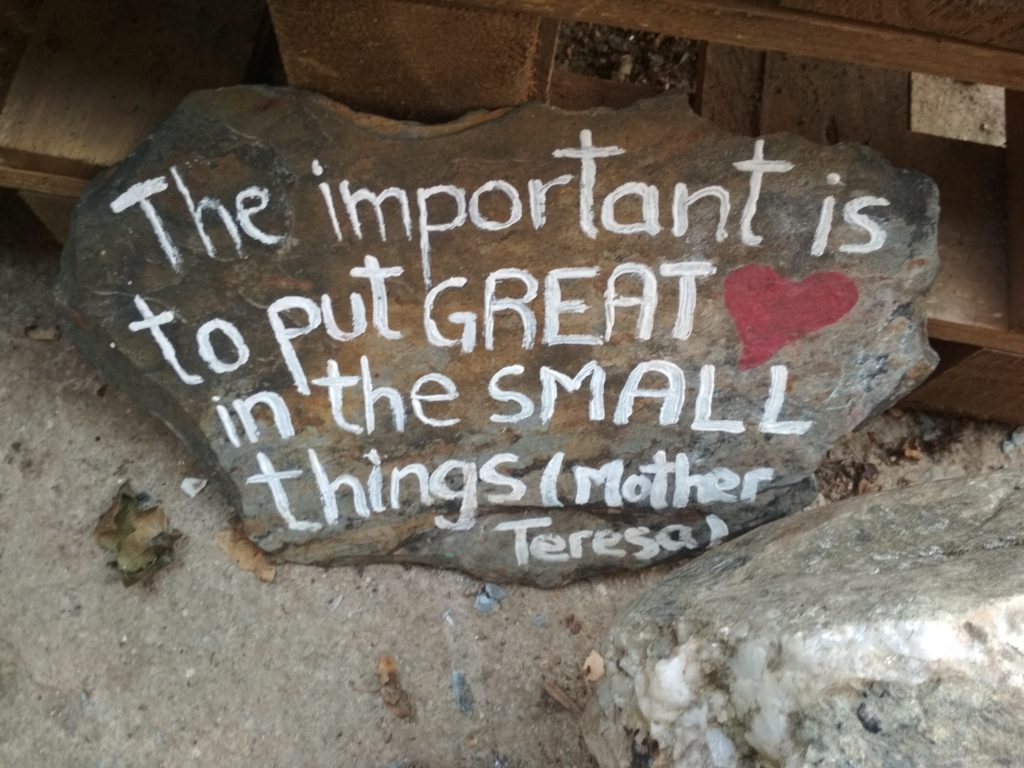 The important is
to put GREAT ❤
in the SMALL
things (Mother
Teresa)